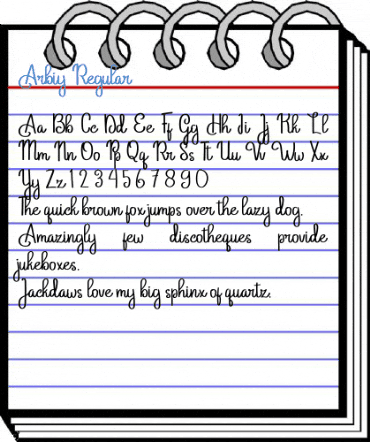 Arbiy Regular
Aa Bb Cc Dd Ee Ff Gg Hh Ii Jj Kk Ll
Mm Nn Oo Pp Qq Rr Ss Tt Uu Vv Ww Xx
Yy Zz 1 2 3 4 5 6 7 8 9 0
The quick brown fox jumps over the lazy dog.
Amazingly few discotheques provide
jukeboxes.
Jackdaws love my big sphinx of quartz.